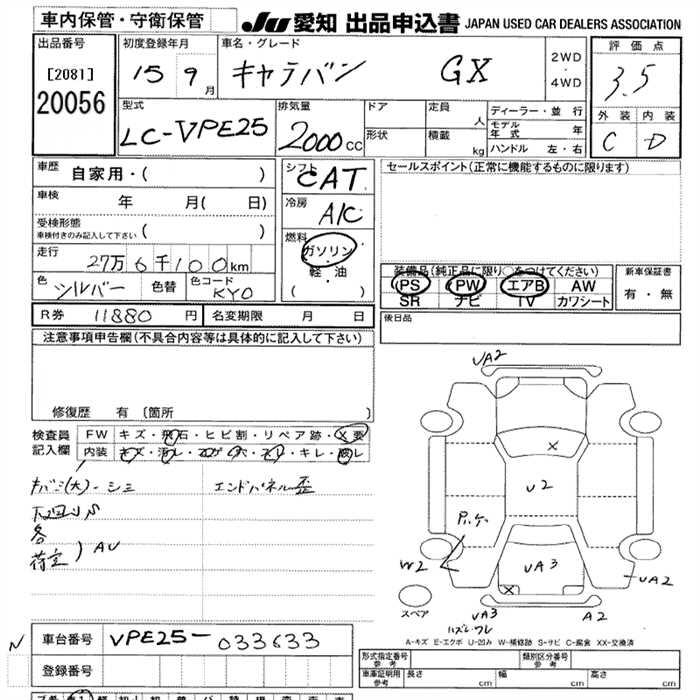 車内保管・守衛保管
JU 愛知 出品申込書 JAPAN USED CAR DEALERS ASSOCIATION
出品番号
[2081]
20056
初度登録年月
15 9月
車名・グレード
キャラバン GX
2WD
・
4WD
評価点
3.5
外装 内装
C D
型式
LC-VPE25
排気量
2000CC
ドア
形状
定員 人
積載 kg
ディーラー・並行
モデル年式 年
ハンドル 左・右
車歴
自家用・( )
車検 年 月( 日)
受検形態
車検付きのみ記入して下さい ( )
走行
27万6千100km
色 シルバー 色替 色コード KY0
シフト
CAT
冷房
A/C
燃料
ガソリン
・
軽・油
( )
セールスポイント(正常に機能するものに限ります)
装備品(純正品に限り○をつけてください)
PS PW エアB AW
SR ナビ TV カワシート
新車保証書
有・無
Rリ券 11880円 名変期限 月 日
後日品
注意事項申告欄(不具合内容等は具体的に記入して下さい)
修復歴 有 〔箇所 〕
検査員
記入欄
FW キズ・飛石・ヒビ割・リペア跡・X要
内装 キズ・汚レ・コゲ・穴・スレ・キレ・破レ
内バミ(大)ーシミ エンドパネル歪
下回りS
各
荷室 ) AU
UA2
X
U2
W2
UA3
X
UA2
UA3
A2
スペア
A-キズ E-エクボ U-凹み W-補修跡 S-サビ C-腐食 XX-交換済
N
車台番号 VPE25-033633
登録番号
形式指定番号
参考
類別区分番号
参考
車庫証明用
参考
長さ cm 幅 cm 高さ cm